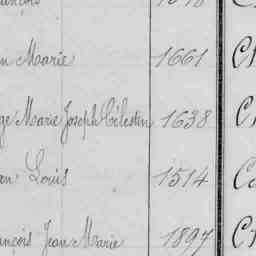 n Marie 1661 C
ge Marie Joseph Célestin 1638 C
an Louis 1514 C
ançois Jean Marie 1897 C